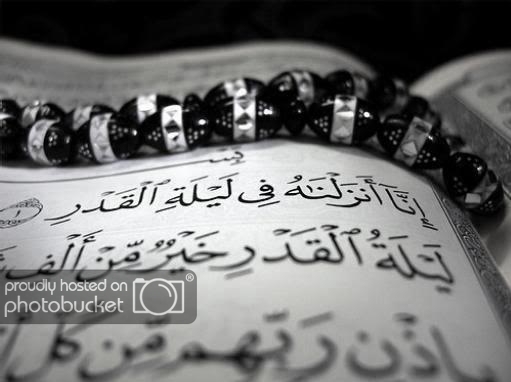 إِنَّا أَنزَلْنَٰهُ فِى لَيْلَةِ ٱلْقَدْرِ ١
لَيْلَةُ ٱلْقَدْرِ خَيْرٌ مِّنْ أَلْفِ
رَبِّهِم مِّن كُلِّ
proudly hosted on
photobucket